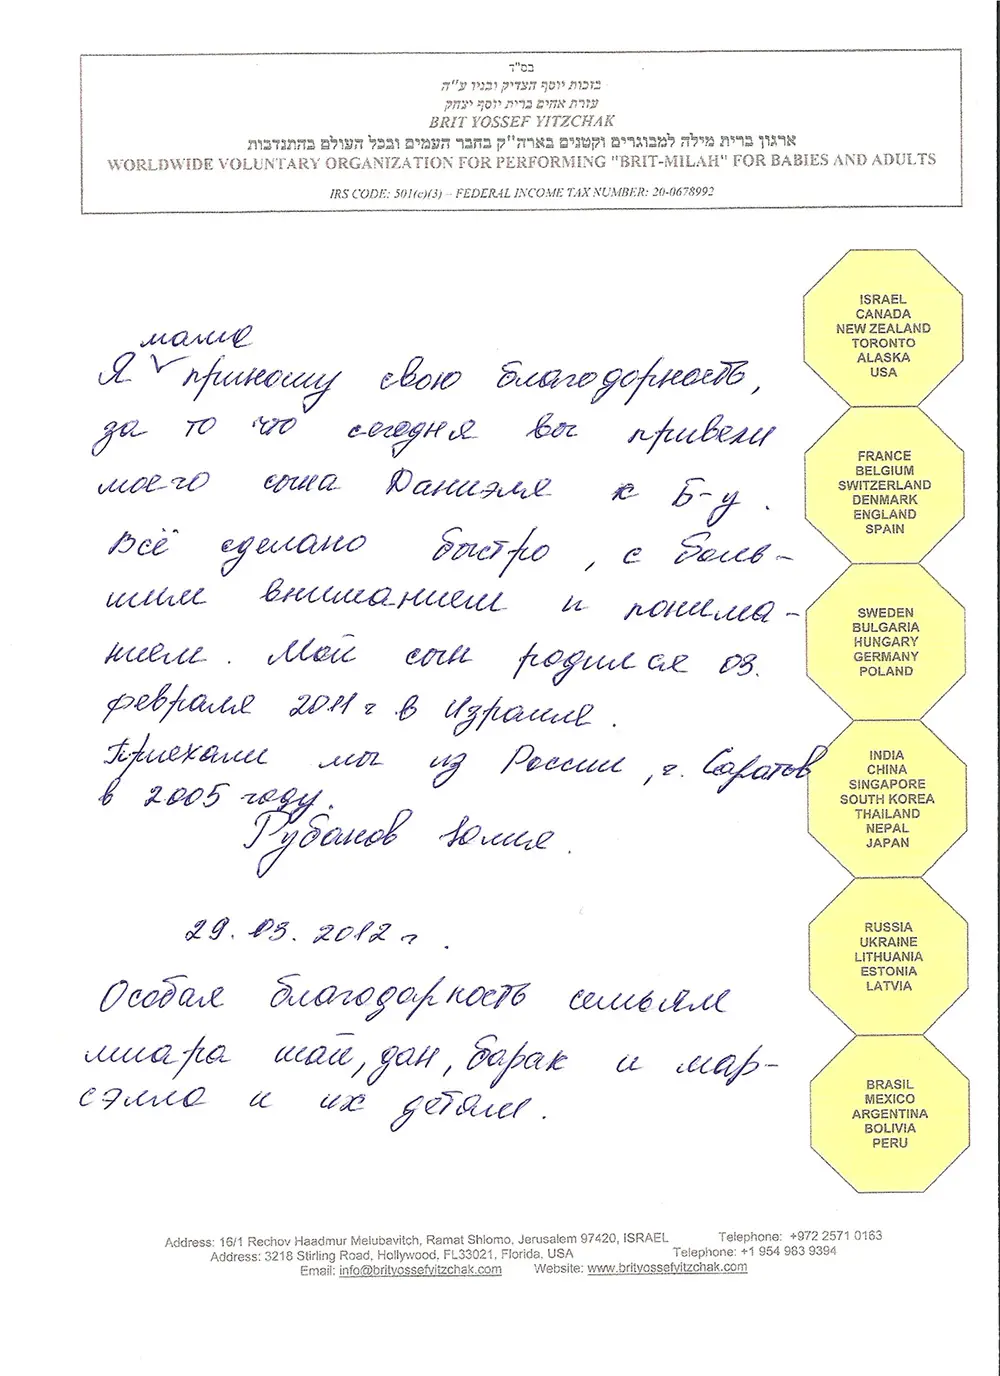 בס"ד
בזכות יוסף הצדיק ובניו ע"ה
עזרת אחים ברית יוסף יצחק
BRIT YOSSEF YITZCHAK
ארגון ברית מילה למבוגרים וקטנים בארה"ק בחבר העמים ובכל העולם בהתנדבות
WORLDWIDE VOLUNTARY ORGANIZATION FOR PERFORMING "BRIT-MILAH" FOR BABIES AND ADULTS
IRS CODE: 501(c)(3) – FEDERAL INCOME TAX NUMBER: 20-0678992
мама
Я приношу свою благодарность,
за то что сегодня вы привели
моего сына Даниэля к Б-у.
Всё сделано быстро, с боль-
шим вниманием и понима-
нием. Мой сын родился 03.
февраля 2011 г в Израиле.
Приехали мы из России, г. Саратов
в 2005 году.
Рубанов Юлия.
29.03.2012 г.
Особая благодарность семьям
миара шай, дан, барак и мар-
сэлло и их детям.
ISRAEL
CANADA
NEW ZEALAND
TORONTO
ALASKA
USA
FRANCE
BELGIUM
SWITZERLAND
DENMARK
ENGLAND
SPAIN
SWEDEN
BULGARIA
HUNGARY
GERMANY
POLAND
INDIA
CHINA
SINGAPORE
SOUTH KOREA
THAILAND
NEPAL
JAPAN
RUSSIA
UKRAINE
LITHUANIA
ESTONIA
LATVIA
BRASIL
MEXICO
ARGENTINA
BOLIVIA
PERU
Address: 16/1 Rechov Haadmur Melubavitch, Ramat Shlomo, Jerusalem 97420, ISRAEL Telephone: +972 2571 0163
Address: 3218 Stirling Road, Hollywood, FL33021, Florida, USA Telephone: +1 954 983 9394
Email: info@brityossefyitzchak.com Website: www.brityossefyitzchak.com